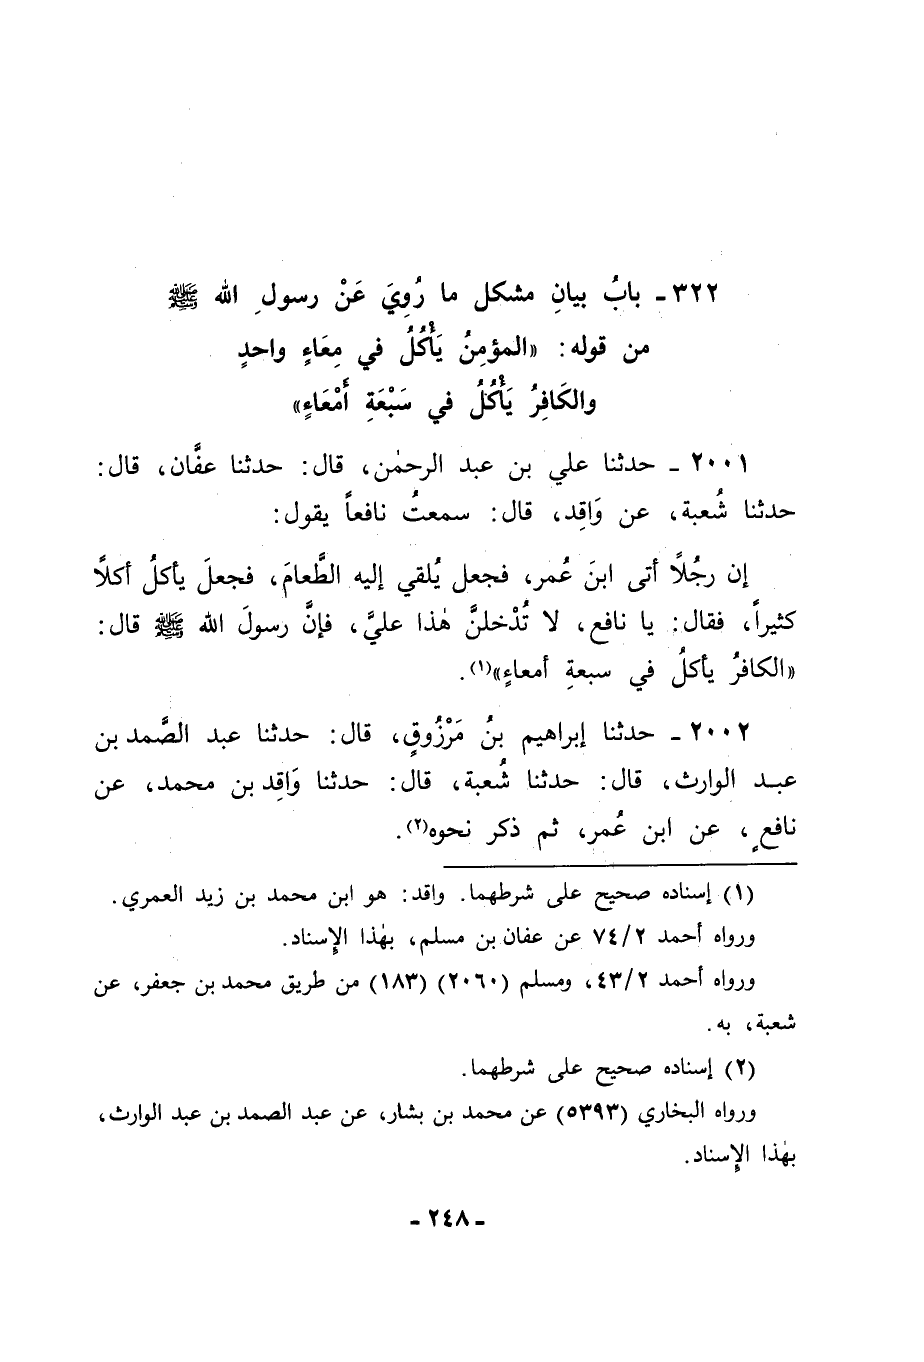 ٣٢٢ - بابُ بيانِ مشكل ما رُوِيَ عَنْ رسولِ الله ﷺ
من قوله: «المؤمِنُ يَأْكُلُ في مِعَاءٍ واحدٍ
والكَافِرُ يَأْكُلُ في سَبْعَةِ أَمْعَاءٍ»
٢٠٠١ - حدثنا علي بن عبد الرحمٰن، قال: حدثنا عفَّان، قال:
حدثنا شُعبة، عن وَاقِد، قال: سمعتُ نافعاً يقول:
إن رجُلاً أتى ابنَ عُمر، فجعل يُلقي إليه الطَّعامَ، فجعلَ يأكلُ أكلاً
كثيراً، فقال: يا نافع، لا تُدْخلنَّ هٰذا عليَّ، فإنَّ رسولَ الله ﷺ قال:
«الكافرُ يأكلُ في سبعةِ أمعاءٍ»(١).
٢٠٠٢ - حدثنا إبراهيم بنُ مَرْزُوقٍ، قال: حدثنا عبد الصَّمد بن
عبد الوارث، قال: حدثنا شُعبة، قال: حدثنا وَاقِد بن محمد، عن
نافعٍ، عن ابن عُمر، ثم ذكر نحوه(٢).
(١) إسناده صحيح على شرطهما. واقد: هو ابن محمد بن زيد العمري.
ورواه أحمد ٧٤/٢ عن عفان بن مسلم، بهٰذا الإِسناد.
ورواه أحمد ٤٣/٢، ومسلم (٢٠٦٠) (١٨٣) من طريق محمد بن جعفر، عن
شعبة، به.
(٢) إسناده صحيح على شرطهما.
ورواه البخاري (٥٣٩٣) عن محمد بن بشار، عن عبد الصمد بن عبد الوارث،
بهٰذا الإِسناد.
- ٢٤٨ -